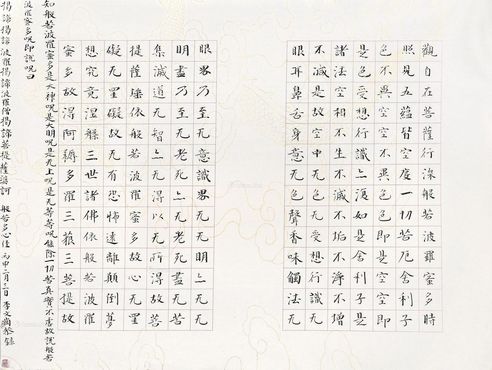 觀自在菩薩行深般若波羅蜜多時
照見五蘊皆空度一切苦厄舍利子
色不異空空不異色色即是空空即
是色受想行識亦復如是舍利子是
諸法空相不生不滅不垢不淨不增
不減是故空中无色无受想行識无
眼耳鼻舌身意无色聲香味觸法无
眼界乃至无意識界无无明亦无无
明盡乃至无老死亦无老死盡无苦
集滅道无智亦无得以无所得故菩
提薩埵依般若波羅蜜多故心无罣
礙无罣礙故无有恐怖遠離顛倒夢
想究竟涅槃三世諸佛依般若波羅
蜜多故得阿耨多羅三藐三菩提故
知般若波羅蜜多是大神呪是大明呪是无上呪是无等等呪能除一切苦真實不虛故說般若
波羅蜜多呪即說呪曰
揭諦揭諦波羅揭諦波羅僧揭諦菩提薩婆訶 般若多心經 丙申二月三日 李文恭錄